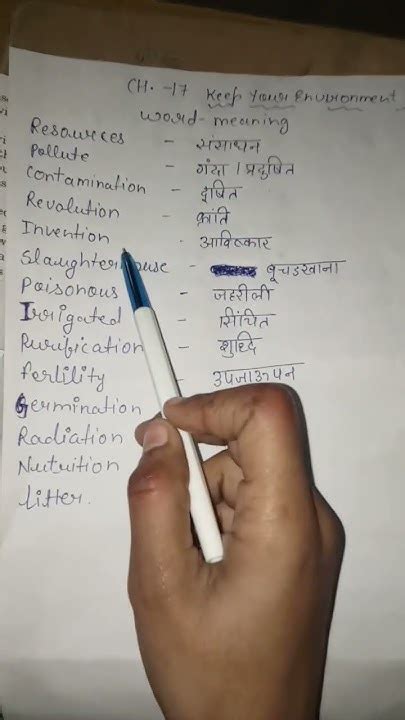 CH. -17 Keep Your Environment
word-meaning
Resources - संसाधन
Pollute - गंदा / प्रदुषित
Contamination - दूषित
Revolution - क्रांति
Invention - आविष्कार
Slaughterhouse - बूचडखाना
Poisonous - जहरीली
Irrigated - सिंचित
Purification - शुद्धि
Fertility - उपजाऊपन
Germination
Radiation
Nutrition
Litter.